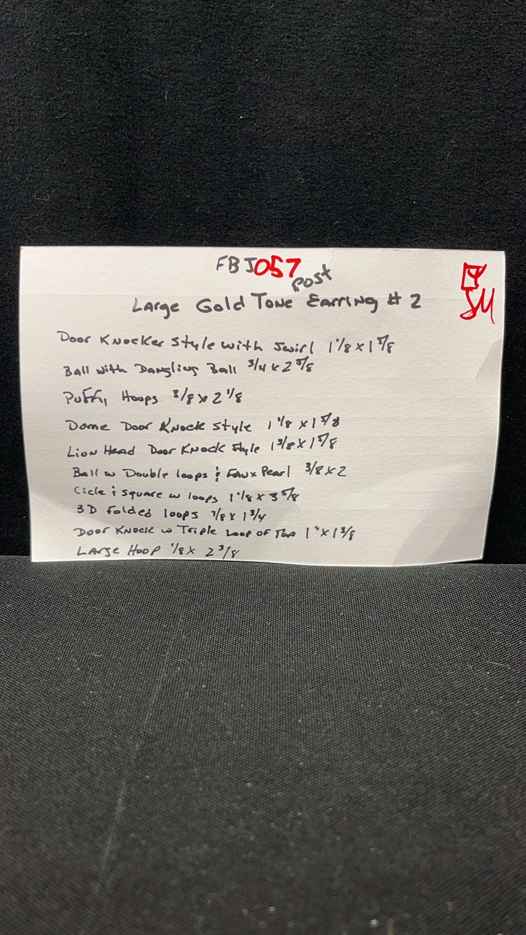 FBJ057
post
Large Gold Tone Earring # 2
SM
Door Knocker Style with Swirl 1 1/8 x 1 5/8
Ball with Dangling Ball 3/4 x 2 5/8
Puffy Hoops 3/8 x 2 1/8
Dome Door Knock Style 1 1/8 x 1 5/8
Lion Head Door Knock Style 1 3/8 x 1 5/8
Ball w Double loops & Faux Pearl 3/8 x 2
Cicle & Square w loops 1 1/8 x 3 5/8
3D Folded loops 3/8 x 1 3/4
Door Knock w Triple Loop of Two 1" x 1 3/8
Large Hoop 1/8 x 2 3/8